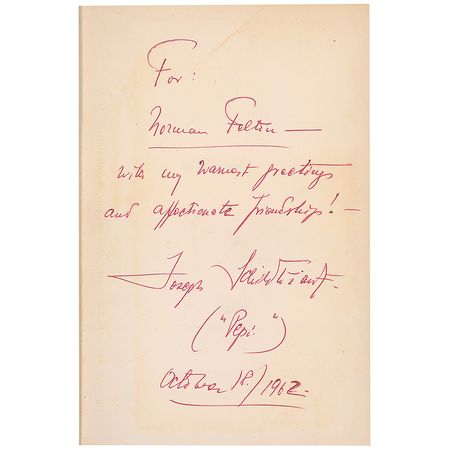 For:
Norman Felton —
with my warmest greetings
and affectionate friendship! —
Joseph Schildkraut.
("Pepi")
October 18./1962-